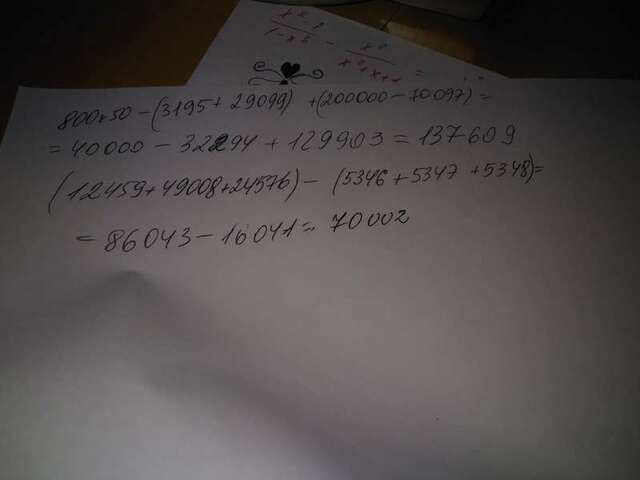 800×50 - (3195 + 29099) + (200000 - 70097) =
= 40000 - 32294 + 129903 = 137609
(12459 + 49008 + 24576) - (5346 + 5347 + 5348) =
= 86043 - 16041 = 70002